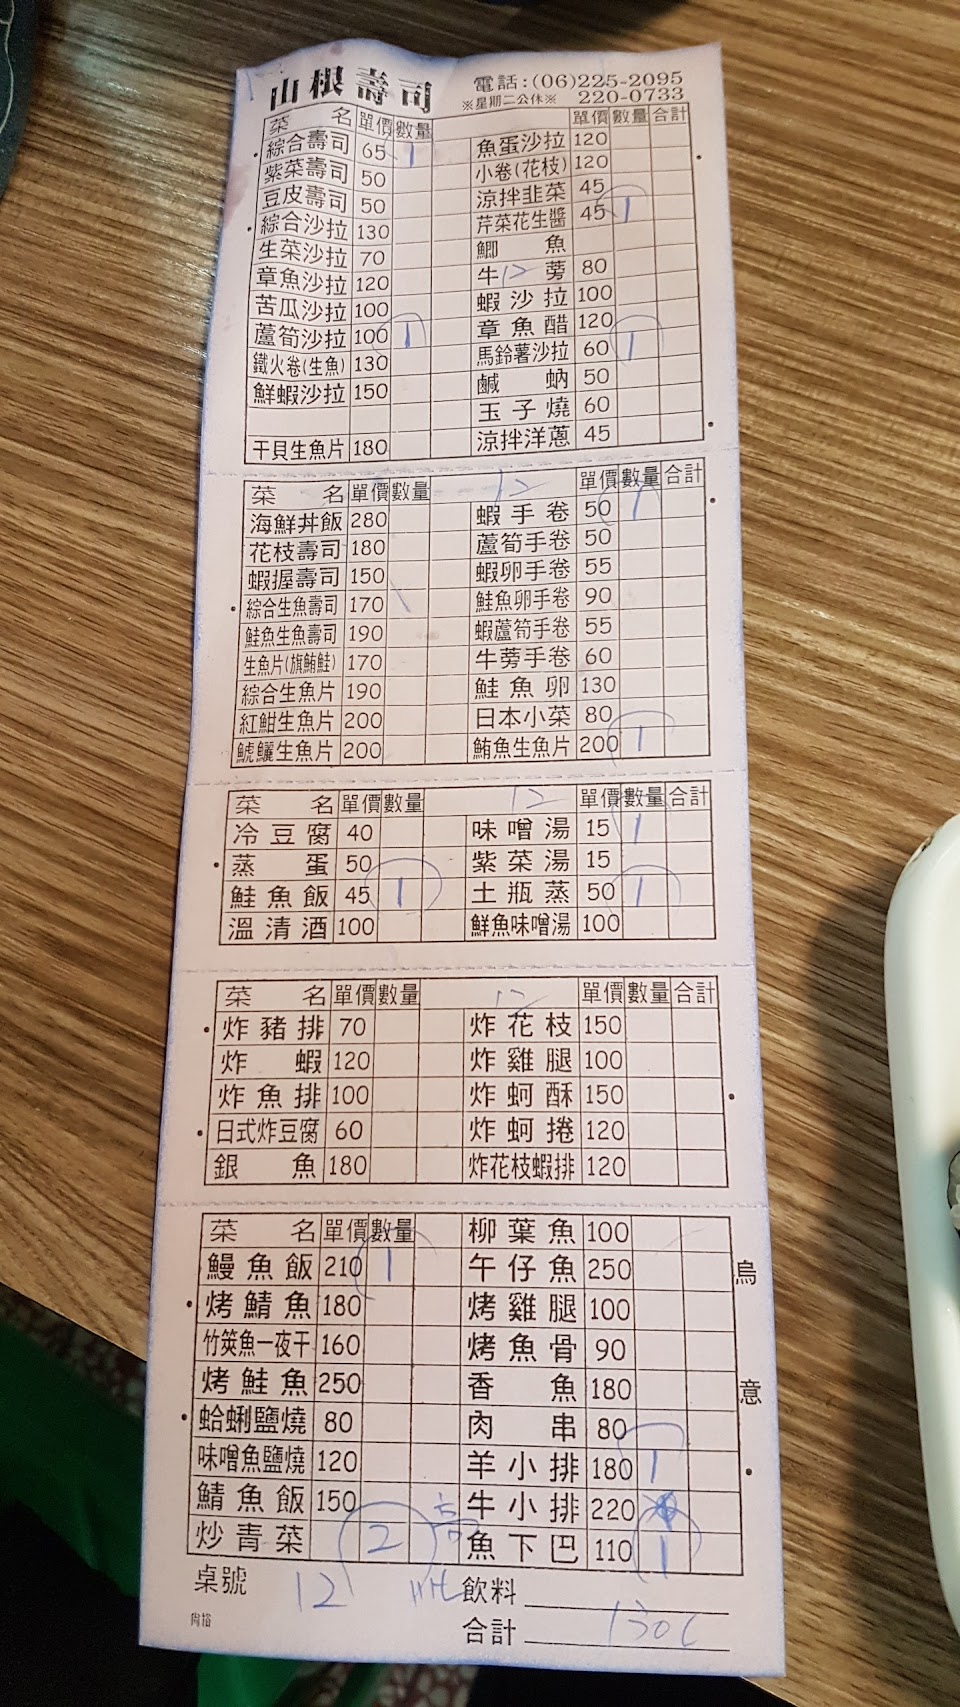 山根壽司 電話:(06)225-2095
※星期二公休※ 220-0733
菜名 單價 數量 單價 數量 合計
綜合壽司 65 1 魚蛋沙拉 120
紫菜壽司 50 小卷(花枝) 120
豆皮壽司 50 涼拌韭菜 45
綜合沙拉 130 芹菜花生醬 45 1
生菜沙拉 70 鯽魚
章魚沙拉 120 牛蒡 80 12
苦瓜沙拉 100 蝦沙拉 100
蘆筍沙拉 100 1 章魚醋 120
鐵火卷(生魚) 130 馬鈴薯沙拉 60 1
鮮蝦沙拉 150 鹹蚋 50
玉子燒 60
干貝生魚片 180 涼拌洋蔥 45
菜名 單價 數量 12 單價 數量 合計
海鮮丼飯 280 蝦手卷 50 1
花枝壽司 180 蘆筍手卷 50
蝦握壽司 150 蝦卵手卷 55
綜合生魚壽司 170 鮭魚卵手卷 90
鮭魚生魚壽司 190 蝦蘆筍手卷 55
生魚片(旗鮪鮭) 170 牛蒡手卷 60
綜合生魚片 190 鮭魚卵 130
紅魽生魚片 200 日本小菜 80
鯱鱺生魚片 200 鮪魚生魚片 200 1
菜名 單價 數量 12 單價 數量 合計
冷豆腐 40 味噌湯 15 1
蒸蛋 50 紫菜湯 15
鮭魚飯 45 1 土瓶蒸 50 1
溫清酒 100 鮮魚味噌湯 100
菜名 單價 數量 12 單價 數量 合計
炸豬排 70 炸花枝 150
炸蝦 120 炸雞腿 100
炸魚排 100 炸蚵酥 150
日式炸豆腐 60 炸蚵捲 120
銀魚 180 炸花枝蝦排 120
菜名 單價 數量 柳葉魚 100
鰻魚飯 210 1 午仔魚 250 烏
烤鯖魚 180 烤雞腿 100
竹筴魚一夜干 160 烤魚骨 90
烤鮭魚 250 香魚 180 意
蛤蜊鹽燒 80 肉串 80
味噌魚鹽燒 120 羊小排 180 1
鯖魚飯 150 牛小排 220
炒青菜 2 魚下巴 110 1
桌號 12 飲料
尚裕 合計